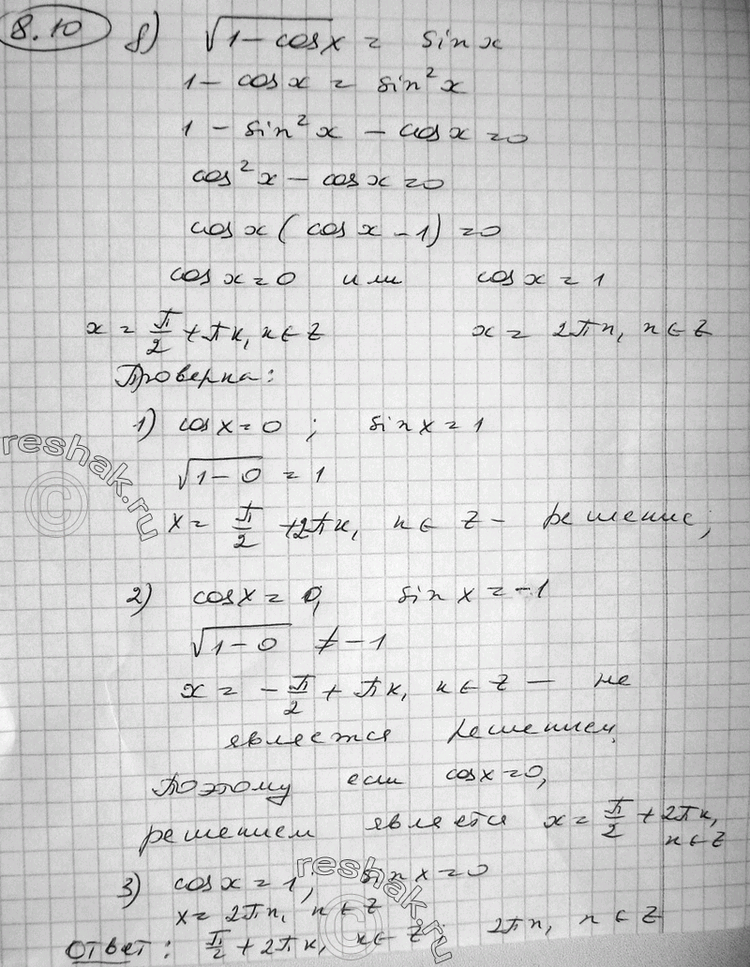 8.10 б) √(1-cosx) = sinx
1 - cosx = sin²x
1 - sin²x - cosx = 0
cos²x - cosx = 0
cosx(cosx-1) = 0
cosx = 0 или cosx = 1
x = π/2 + πк, к ∈ Z x = 2πn, n ∈ Z
Проверка:
1) cosx = 0 ; sinx = 1
√(1-0) = 1
x = π/2 + 2πк, к ∈ Z - решение;
2) cosx = 0, sinx = -1
√(1-0) ≠ -1
x = -π/2 + πк, к ∈ Z — не
является решением,
Поэтому если cosx = 0,
решением является x = π/2 + 2πк,
к ∈ Z
3) cosx = 1, sinx = 0
x = 2πn, n ∈ Z
Ответ: π/2 + 2πк, к ∈ Z; 2πn, n ∈ Z
reshak.ru
reshak.ru